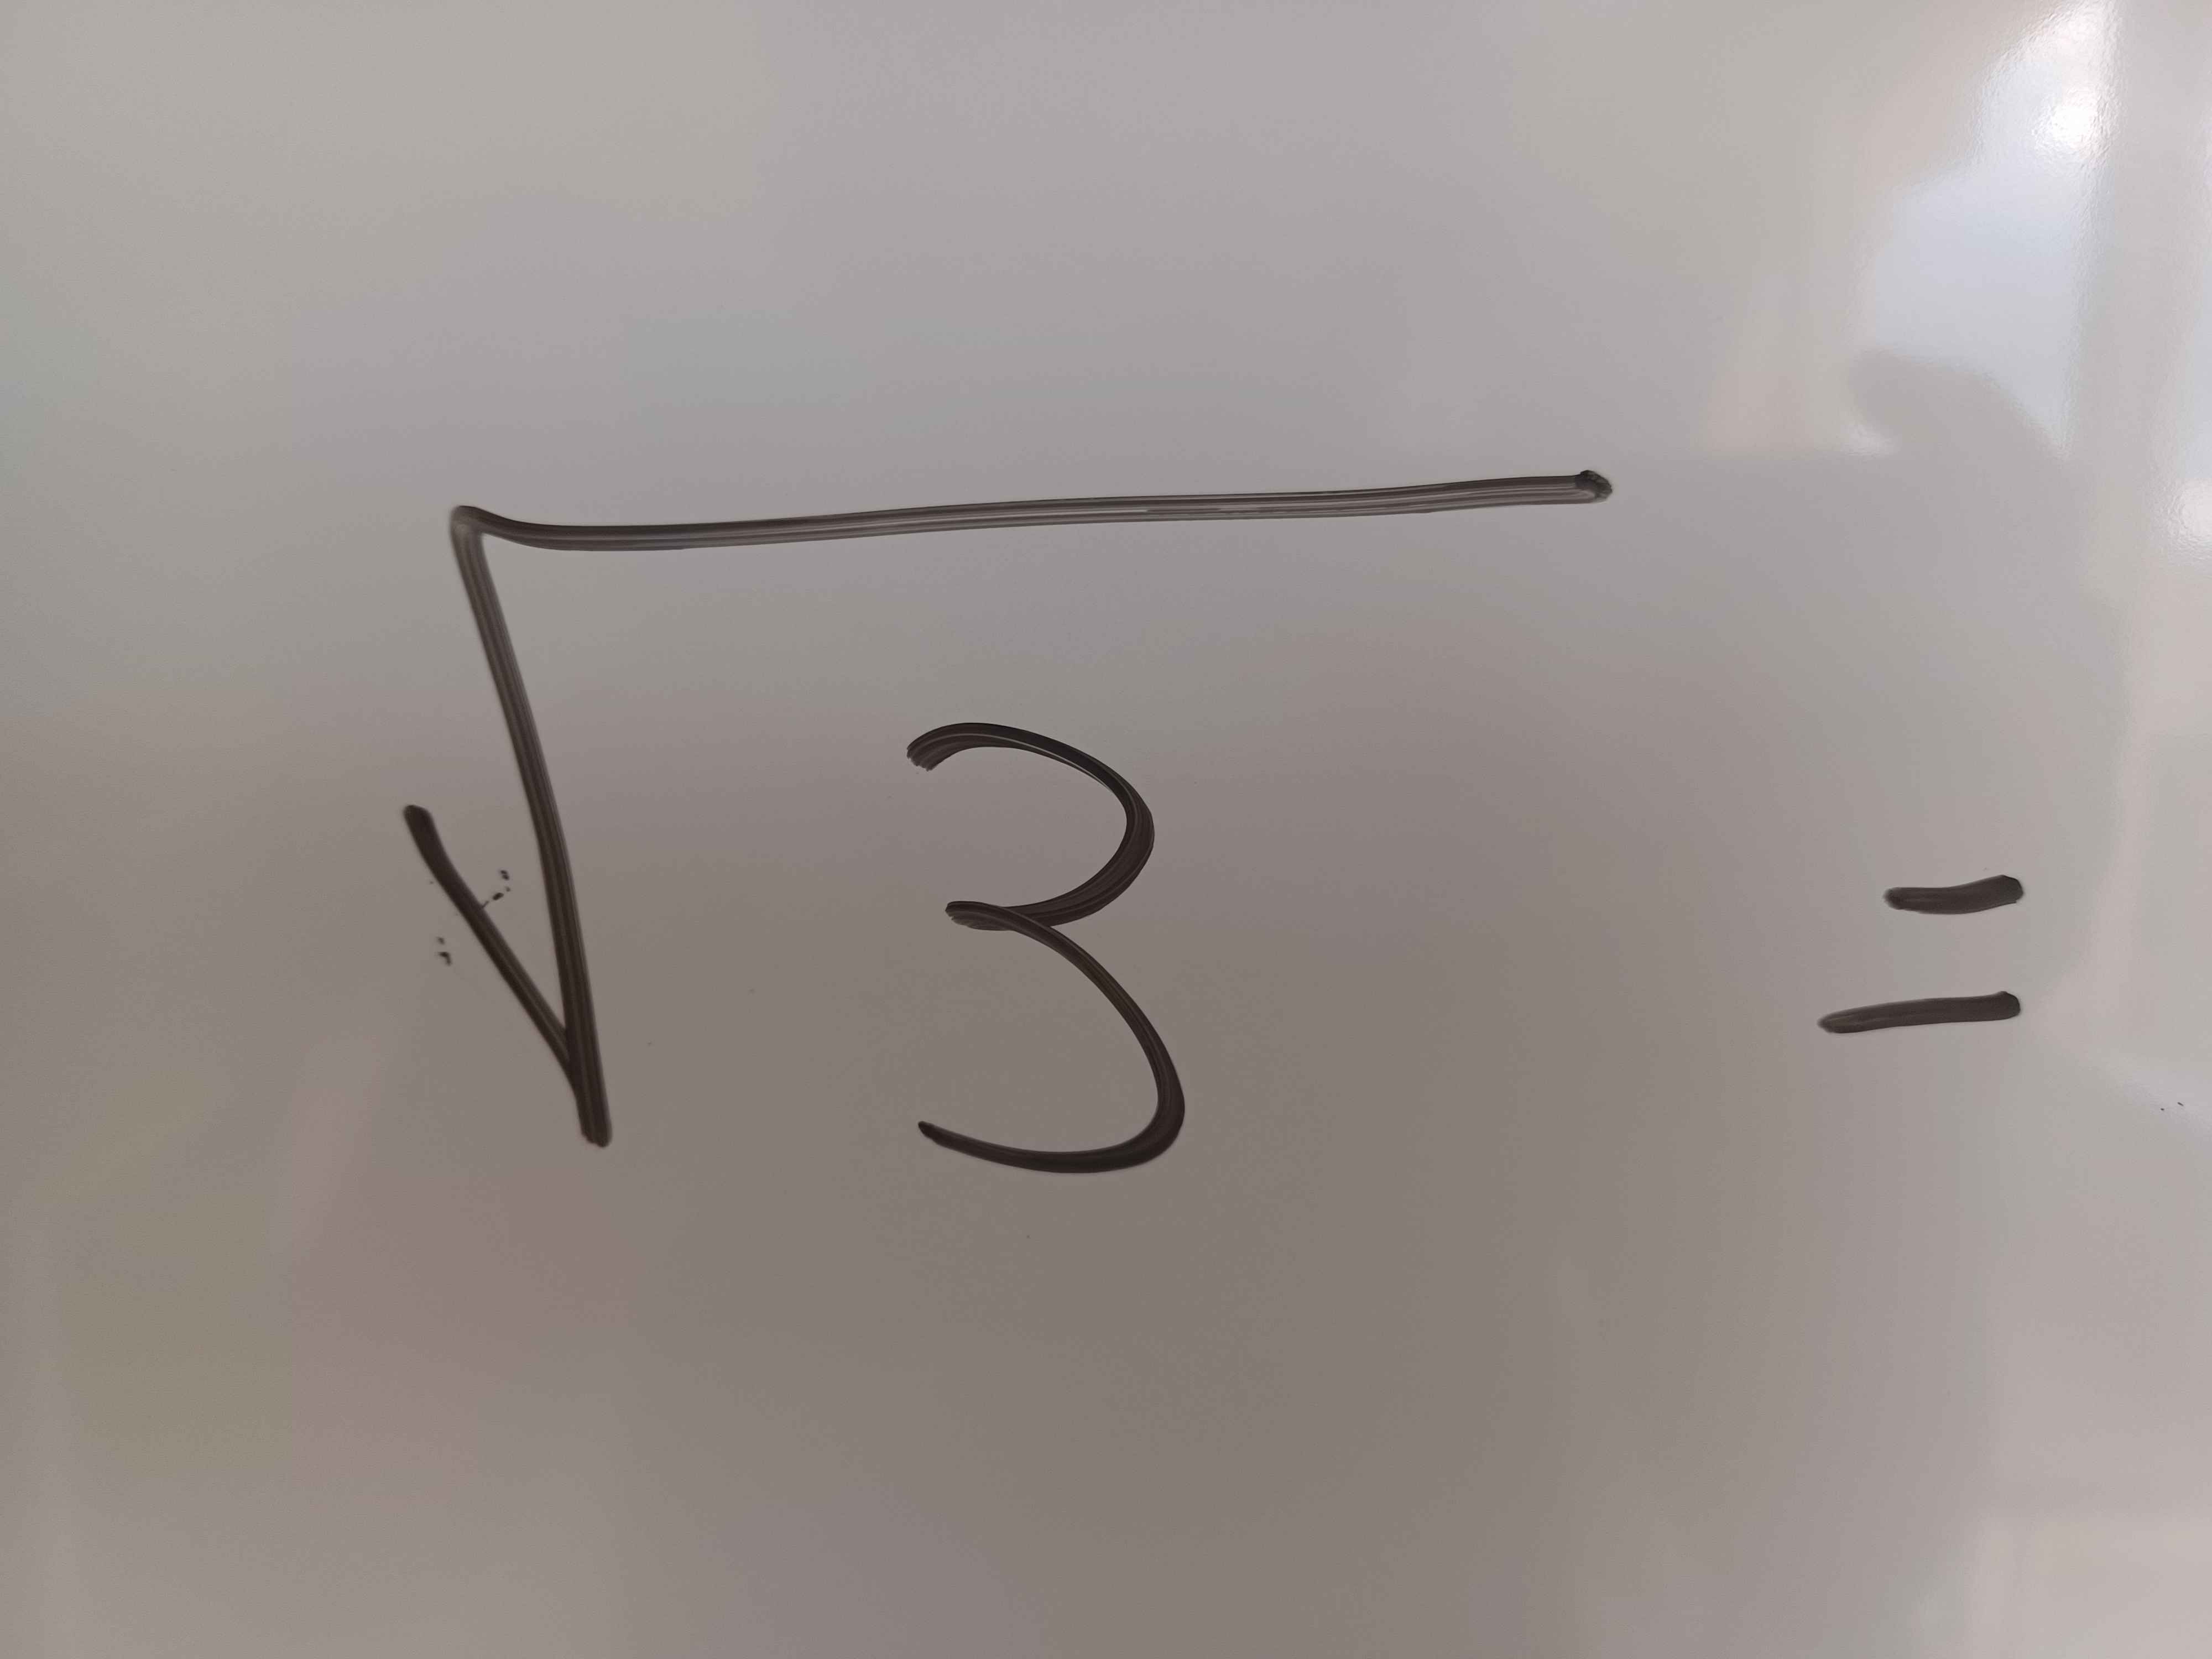 √3 =